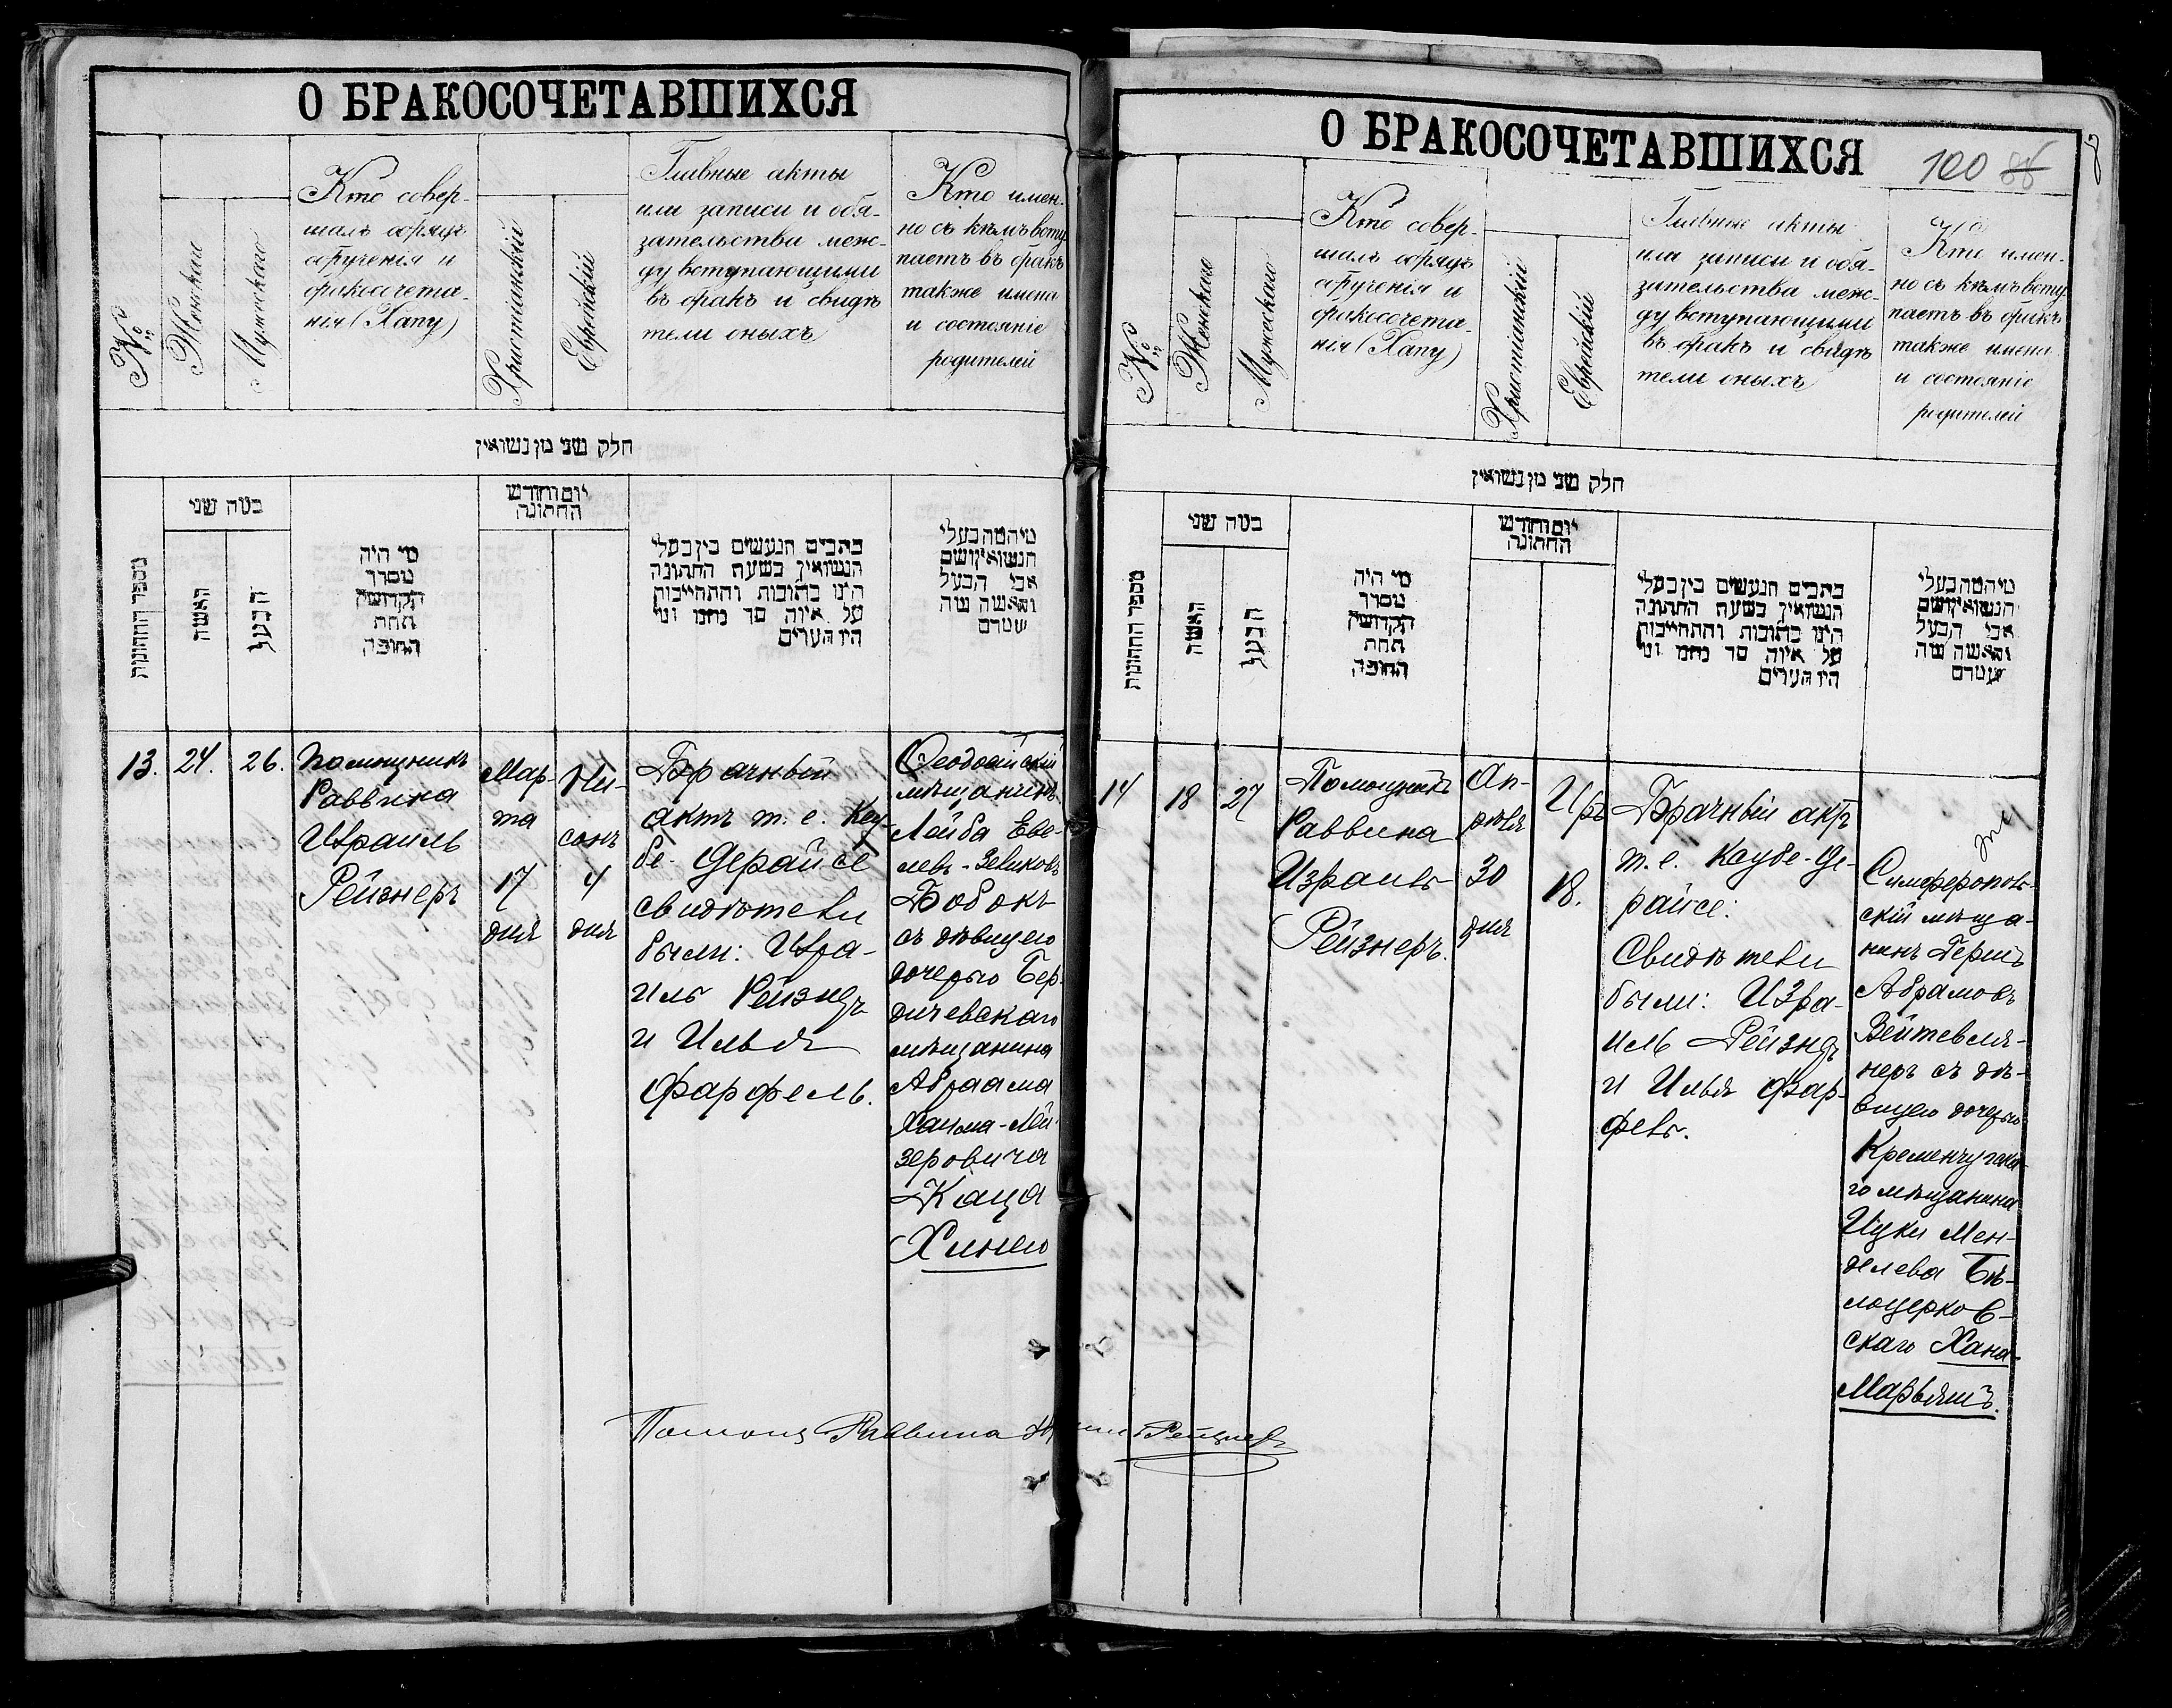 О БРАКОСОЧЕТАВШИХСЯ
№
Женскаго
Мужескаго
Кто совер-
шалъ обрядъ
обрученія и
бракосочета-
нія (Хапу)
Христіанскій
Еврейскій
Главные акты
или записи и обя-
зательства меж-
ду вступающими
въ бракъ и свидѣ
тели оныхъ
Кто имен-
но съ кѣмъ всту
паетъ въ бракъ
также имена
и состояніе
родителей
חלק שני מן נשואין
מספר החתונות
במה שני
האשה
הבעל
מי היה
מסדר
הקדושין
תחת
החופה
יום וחודש
החתונה
כתבים הנעשים בין בעלי
הנשואין בשעת החתונה
היינו כתובות והתחייבות
על איזה סך כמה ומי
היו העדים
מי המה בעלי
הנשואין ושם
אבי הבעל
והאשה מה
שמדם
13.
24.
26.
Помощникъ
Раввина
Израиль
Рейзнеръ
Мар-
та
17
дня
Ни-
сонъ
4
дня
Брачный
актъ т. е. Кеу-
бе-Дерайсе
свидѣтели
были: Изра-
иль Рейзнеръ
и Илья
Фарфель.
Ѳеодосійскій
мѣщанинъ
Лейба Еве-
левъ-Зеликовъ
Бобокъ
съ дѣвицею
дочерью Бер-
дичевскаго
мѣщанина
Абраама
Хаима-Лей-
зеровича
Каца
Хинею
Помощ Раввина Рейзнеръ
О БРАКОСОЧЕТАВШИХСЯ
100
№
Женскаго
Мужескаго
Кто совер-
шалъ обрядъ
обрученія и
бракосочета-
нія (Хапу)
Христіанскій
Еврейскій
Главные акты
или записи и обя-
зательства меж-
ду вступающими
въ бракъ и свидѣ
тели оныхъ
Кто имен-
но съ кѣмъ всту
паетъ въ бракъ
также имена
и состояніе
родителей
חלק שני מן נשואין
מספר החתונות
במה שני
האשה
הבעל
מי היה
מסדר
הקדושין
תחת
החופה
יום וחודש
החתונה
כתבים הנעשים בין בעלי
הנשואין בשעת החתונה
היינו כתובות והתחייבות
על איזה סך כמה ומי
היו העדים
מי המה בעלי
הנשואין ושם
אבי הבעל
והאשה מה
שמדם
14
18
27
Помощникъ
Раввина
Израиль
Рейзнеръ.
Ап-
рѣля
30
дня
Иръ
18.
Брачный актъ
т. е. Каубе-Де-
райсе:
Свидѣтели
были: Изра-
иль Рейзнеръ
и Илья Фар-
фель.
Симферополь-
скій мѣща-
нинъ Гершъ
Абрамовъ
Вейтевля-
неръ съ дѣ-
вицею дочерью
Кременчугска-
го мѣщанина
Ицки Мен-
делева Бѣ-
лоцерков-
скаго Хана-
Марьямъ.